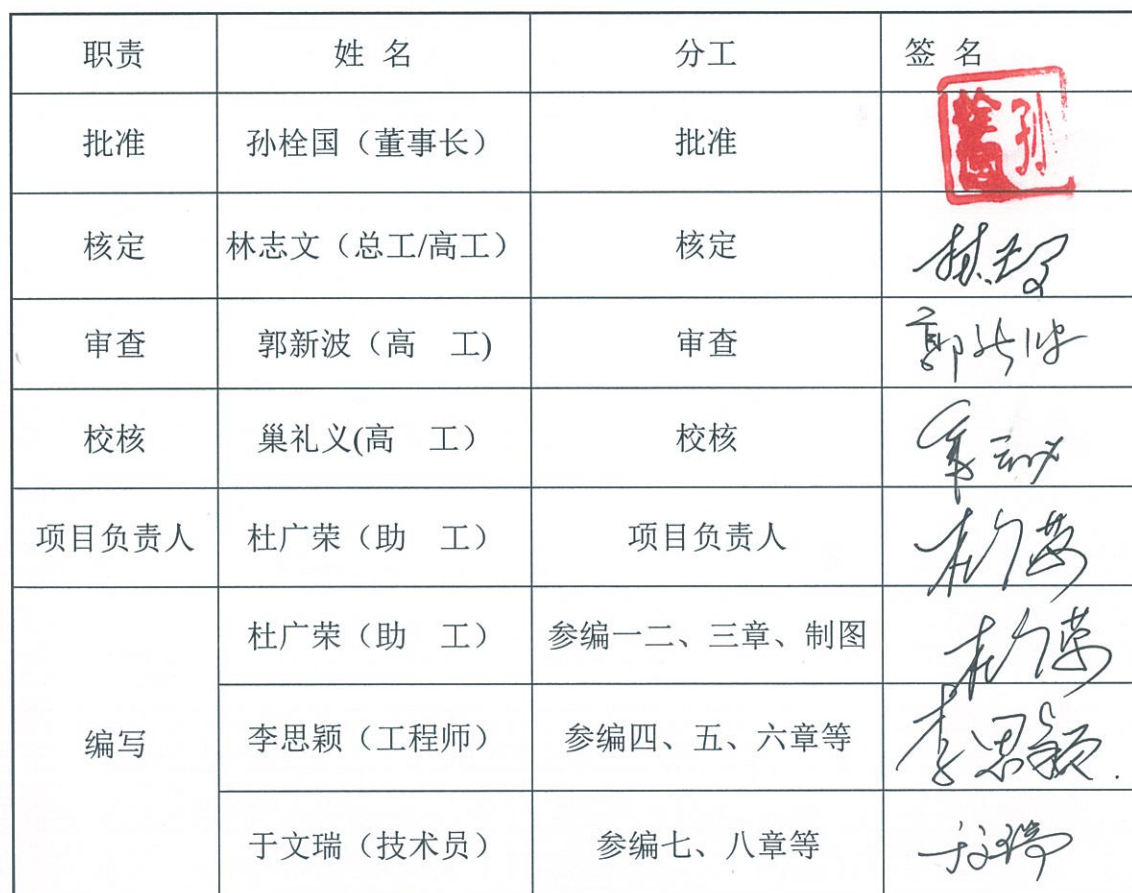 职责 姓 名 分工 签 名
批准 孙栓国（董事长） 批准 孙栓国
核定 林志文（总工/高工） 核定 林志文
审查 郭新波（高 工) 审查 郭新波
校核 巢礼义(高 工） 校核
项目负责人 杜广荣（助 工） 项目负责人 杜广荣
编写 杜广荣（助 工） 参编一二、三章、制图 杜广荣
李思颖（工程师） 参编四、五、六章等 李思颖
于文瑞（技术员） 参编七、八章等 于文瑞